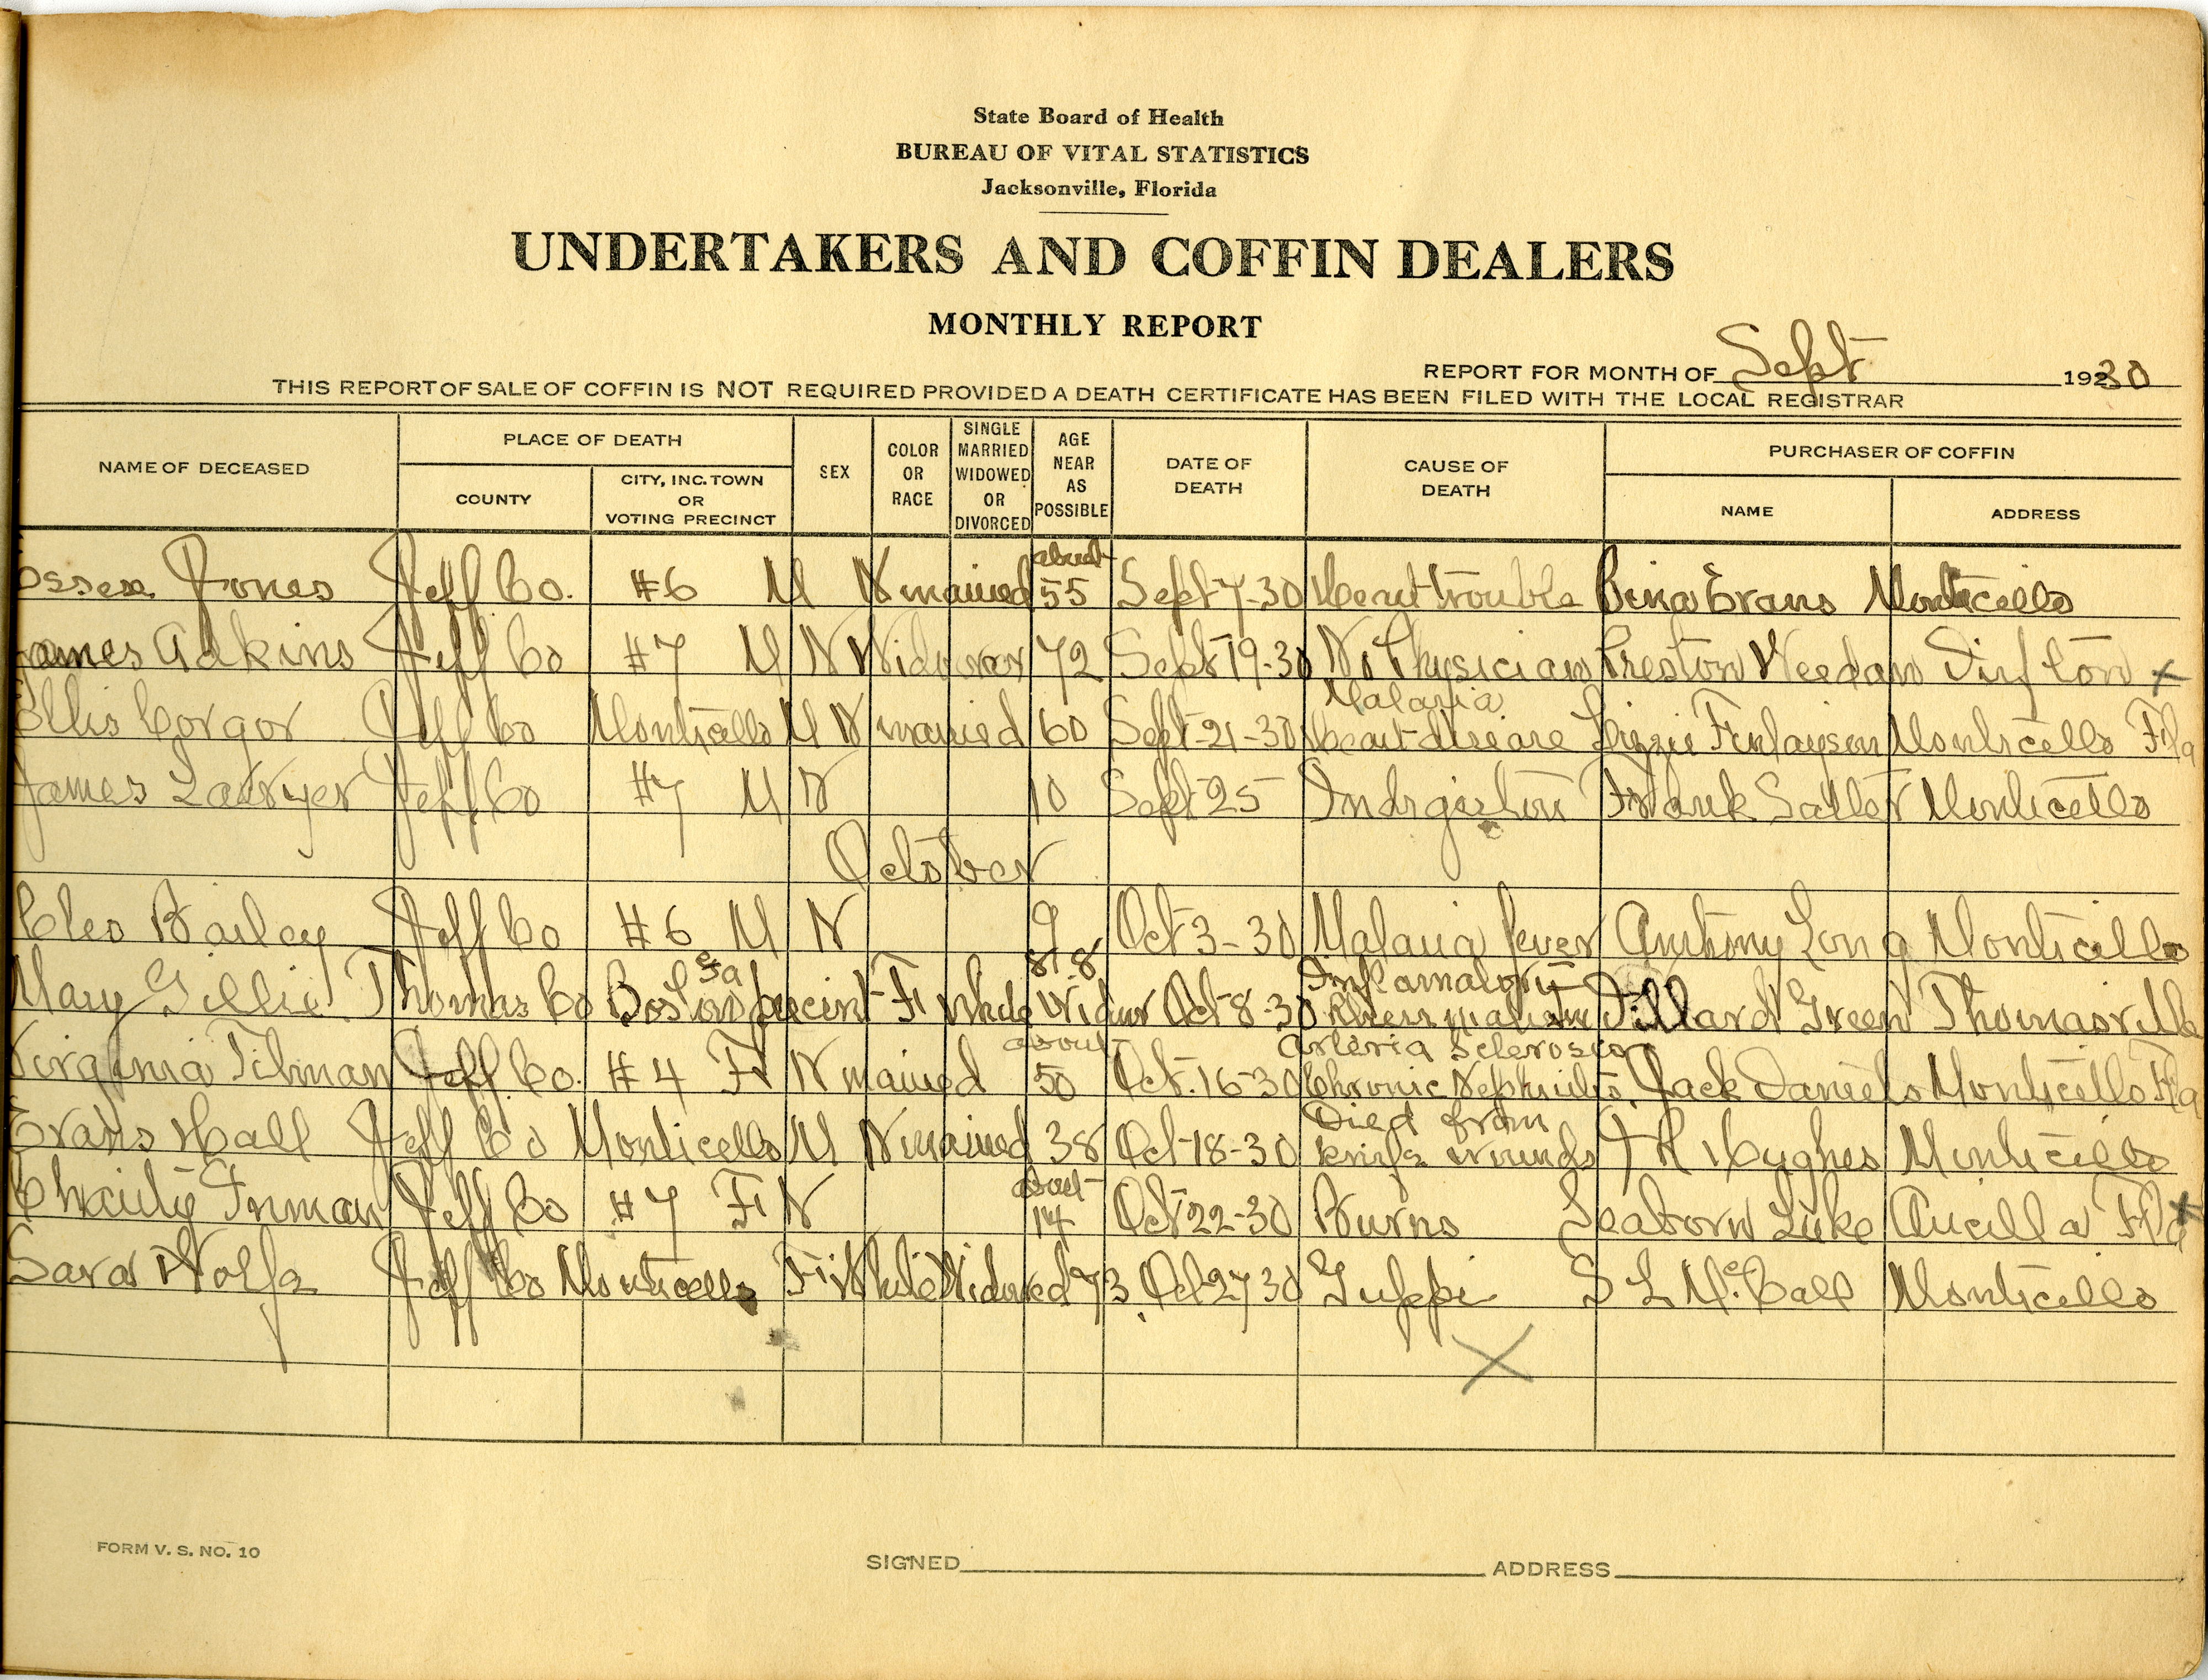 State Board of Health
BUREAU OF VITAL STATISTICS
Jacksonville, Florida
UNDERTAKERS AND COFFIN DEALERS
MONTHLY REPORT
REPORT FOR MONTH OF Sept 19230
THIS REPORT OF SALE OF COFFIN IS NOT REQUIRED PROVIDED A DEATH CERTIFICATE HAS BEEN FILED WITH THE LOCAL REGISTRAR
NAME OF DECEASED
PLACE OF DEATH
COUNTY
CITY, INC. TOWN
OR
VOTING PRECINCT
SEX
COLOR
OR
RACE
SINGLE
MARRIED
WIDOWED
OR
DIVORCED
AGE
NEAR
AS
POSSIBLE
DATE OF
DEATH
CAUSE OF
DEATH
PURCHASER OF COFFIN
NAME
ADDRESS
about
Jones Jeff Co. #6 M N married 55 Sept 7-30 Heart trouble Bina Evans Monticello
James Adkins Jeff Co #7 M N Widower 72 Sept 19-30 No Physician Preston Weedan x
Malaria
Ellis Corgor Jeff Co Monticello M N married 60 Sept-21-30 Heart disease Lizzie Finlayson Monticello Fla
James Lawyer Jeff Co #7 M N 10 Sept 25 Indigestion Frank Salter Monticello
October
Cleo Bailey Jeff Co #6 M N 9 Oct 3-30 Malaria fever Anthony Long Monticello
Ga Inflamatory
Mary Gillie Thomas Co Boston precint F White Widow Oct 8-30 Dillard Green Thomasville
about Arteria Sclerosis
Virginia Tilman Jeff Co. #4 F N married 50 Oct. 16-30 Chronic Nephritis, Jack Daniels Monticello Fla
Died from
Evans Hall Jeff Co Monticello M N married 38 Oct-18-30 knife wounds Hughes Monticello
about
Chaity Inman Jeff Co #7 F N 14 Oct 22-30 Burns Seaborn Luke Aucilla Fla x
Sara Wolfe Jeff Co Monticello F White Widowed 73 Oct 27 30 S L McCall Monticello
X
FORM V. S. NO. 10
SIGNED ADDRESS